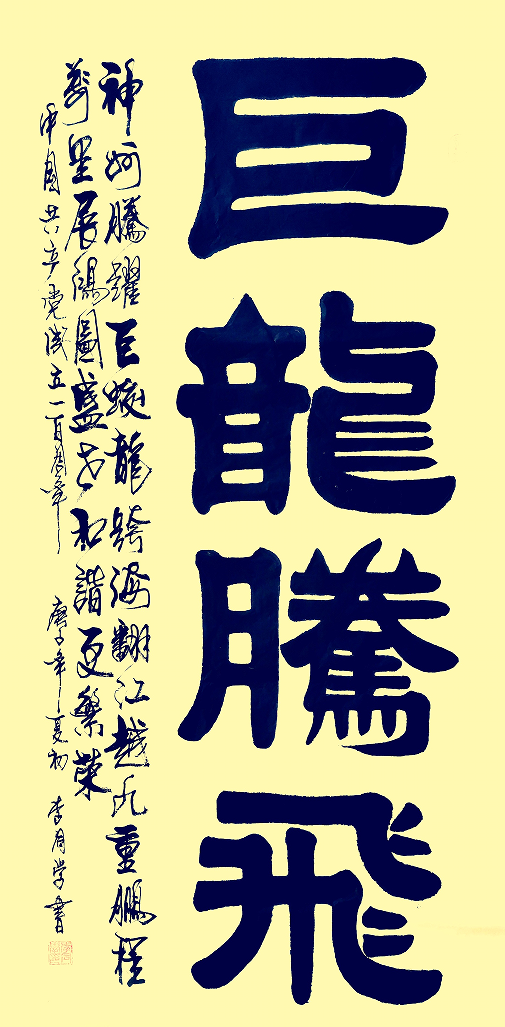 巨龍騰飛
神州騰躍巨蛟龍跨海翻江越九重鵬程
萬里展鴻圖盛世和諧更繁榮
中國共产党成立一百周年 庚子年夏初 李月学書